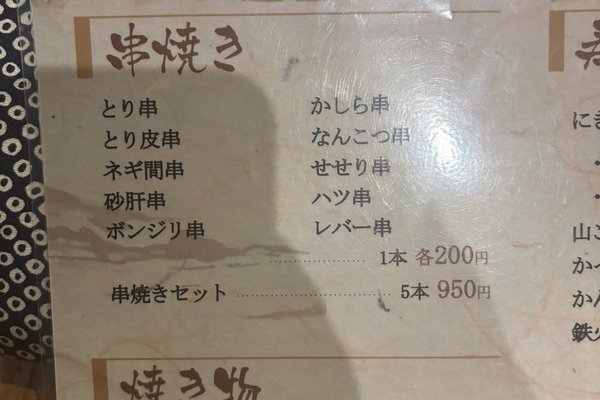 串焼き
とり串
とり皮串
ネギ間串
砂肝串
ボンジリ串
かしら串
なんこつ串
せせり串
ハツ串
レバー串
1本 各200円
串焼きセット 5本 950円
焼き物
にき
・
・
山こ
かっ
かん
鉄火